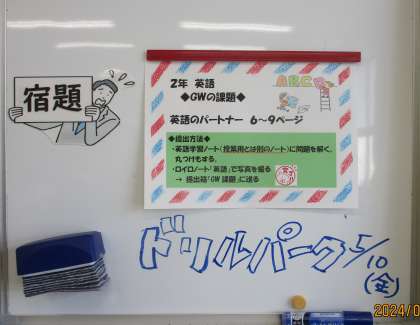 宿題
2年 英語
◆GWの課題◆
英語のパートナー 6〜9ページ
◆提出方法◆
・英語学習ノート(授業用とは別のノート)に問題を解く。
丸つけもする。
・ロイロノート「英語」で写真を撮る
→ 提出箱「GW課題」に送る
ドリルパーク 5/10
(金)
2024/0